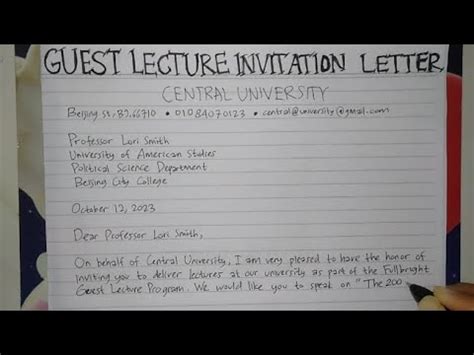 GUEST LECTURE INVITATION LETTER
CENTRAL UNIVERSITY
Beijing st. BJ, 66710 • 01084070123 • central@university@gmail.com
Professor Lori Smith
University of American Studies
Political Science Department
Beijing City College
October 12, 2023
Dear Professor Lori Smith,
On behalf of Central University, I am very pleased to have the honor of
inviting you to deliver lectures at our university as part of the Fullbright
Guest Lecture Program. We would like you to speak on "The 200